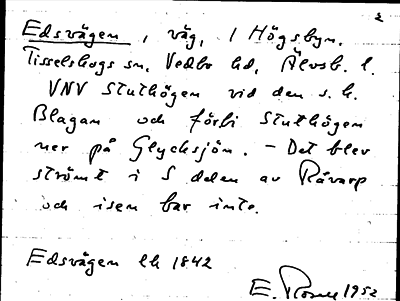 2
Edsvägen, väg, i Högsbyn.
Tisselskogs sn. Vedbo hd, Älvsb. l.
VNV Stuthögen vid den s. k.
Blagan och förbi Stuthögen
ner på Glycksjön. – Det blev
strömt i S delen av Råvarp
och isen bar inte.
Edsvägen lk 1842
E. 1952